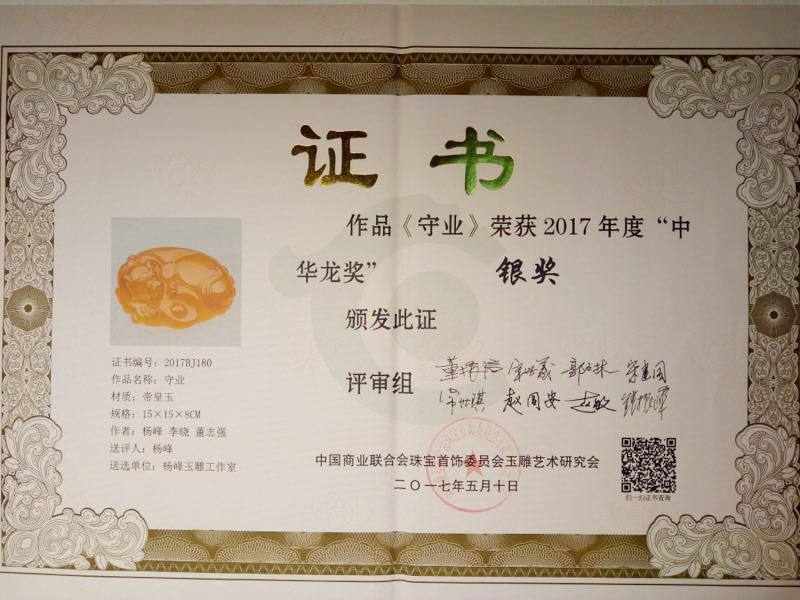 证书
作品《守业》荣获 2017 年度“中
华龙奖” 银奖
颁发此证
评审组
证书编号：2017BJ180
作品名称：守业
材质：帝皇玉
规格：15×15×8CM
作者：杨峰 李晓 董志强
送评人：杨峰
送选单位：杨峰玉雕工作室
赵国安
中国商业联合会珠宝首饰委员会玉雕艺术研究会
二〇一七年五月十日
扫一扫证书查询